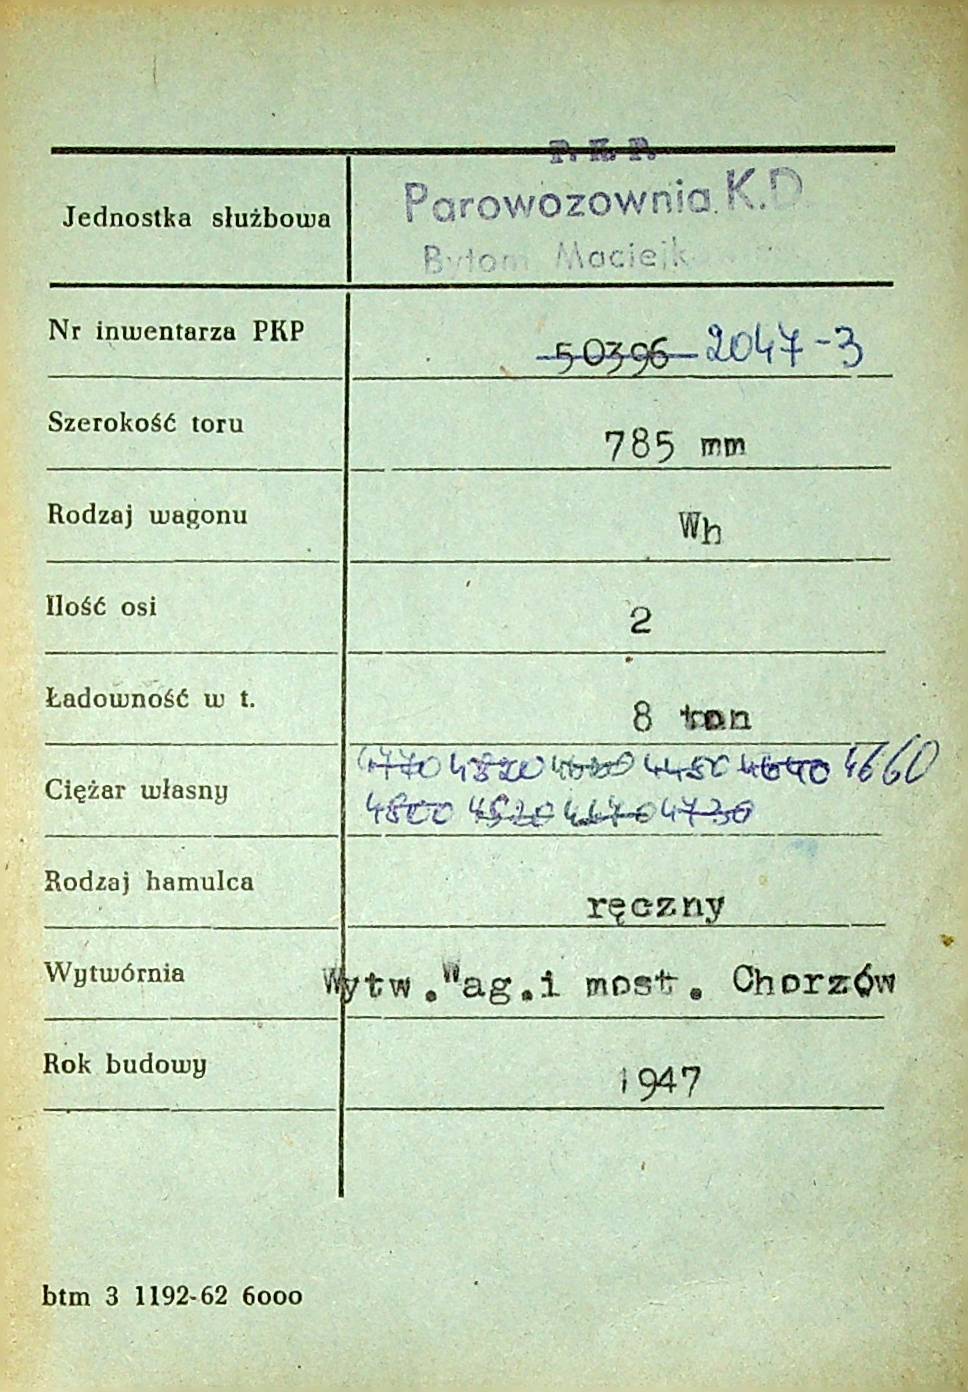 P. K. P.
Jednostka służbowa Parowozownia K.D.
Bytom
Nr inwentarza PKP 50396 2047-3
Szerokość toru 785 mm
Rodzaj wagonu Wh
Ilość osi 2
Ładowność w t. 8 ton
4770 4820 4450 4640 4660
Ciężar własny
4800 4520 4730
Rodzaj hamulca ręczny
Wytwórnia Wytw. Wag. i most. Chorzów
Rok budowy 1947
btm 3 1192-62 6000